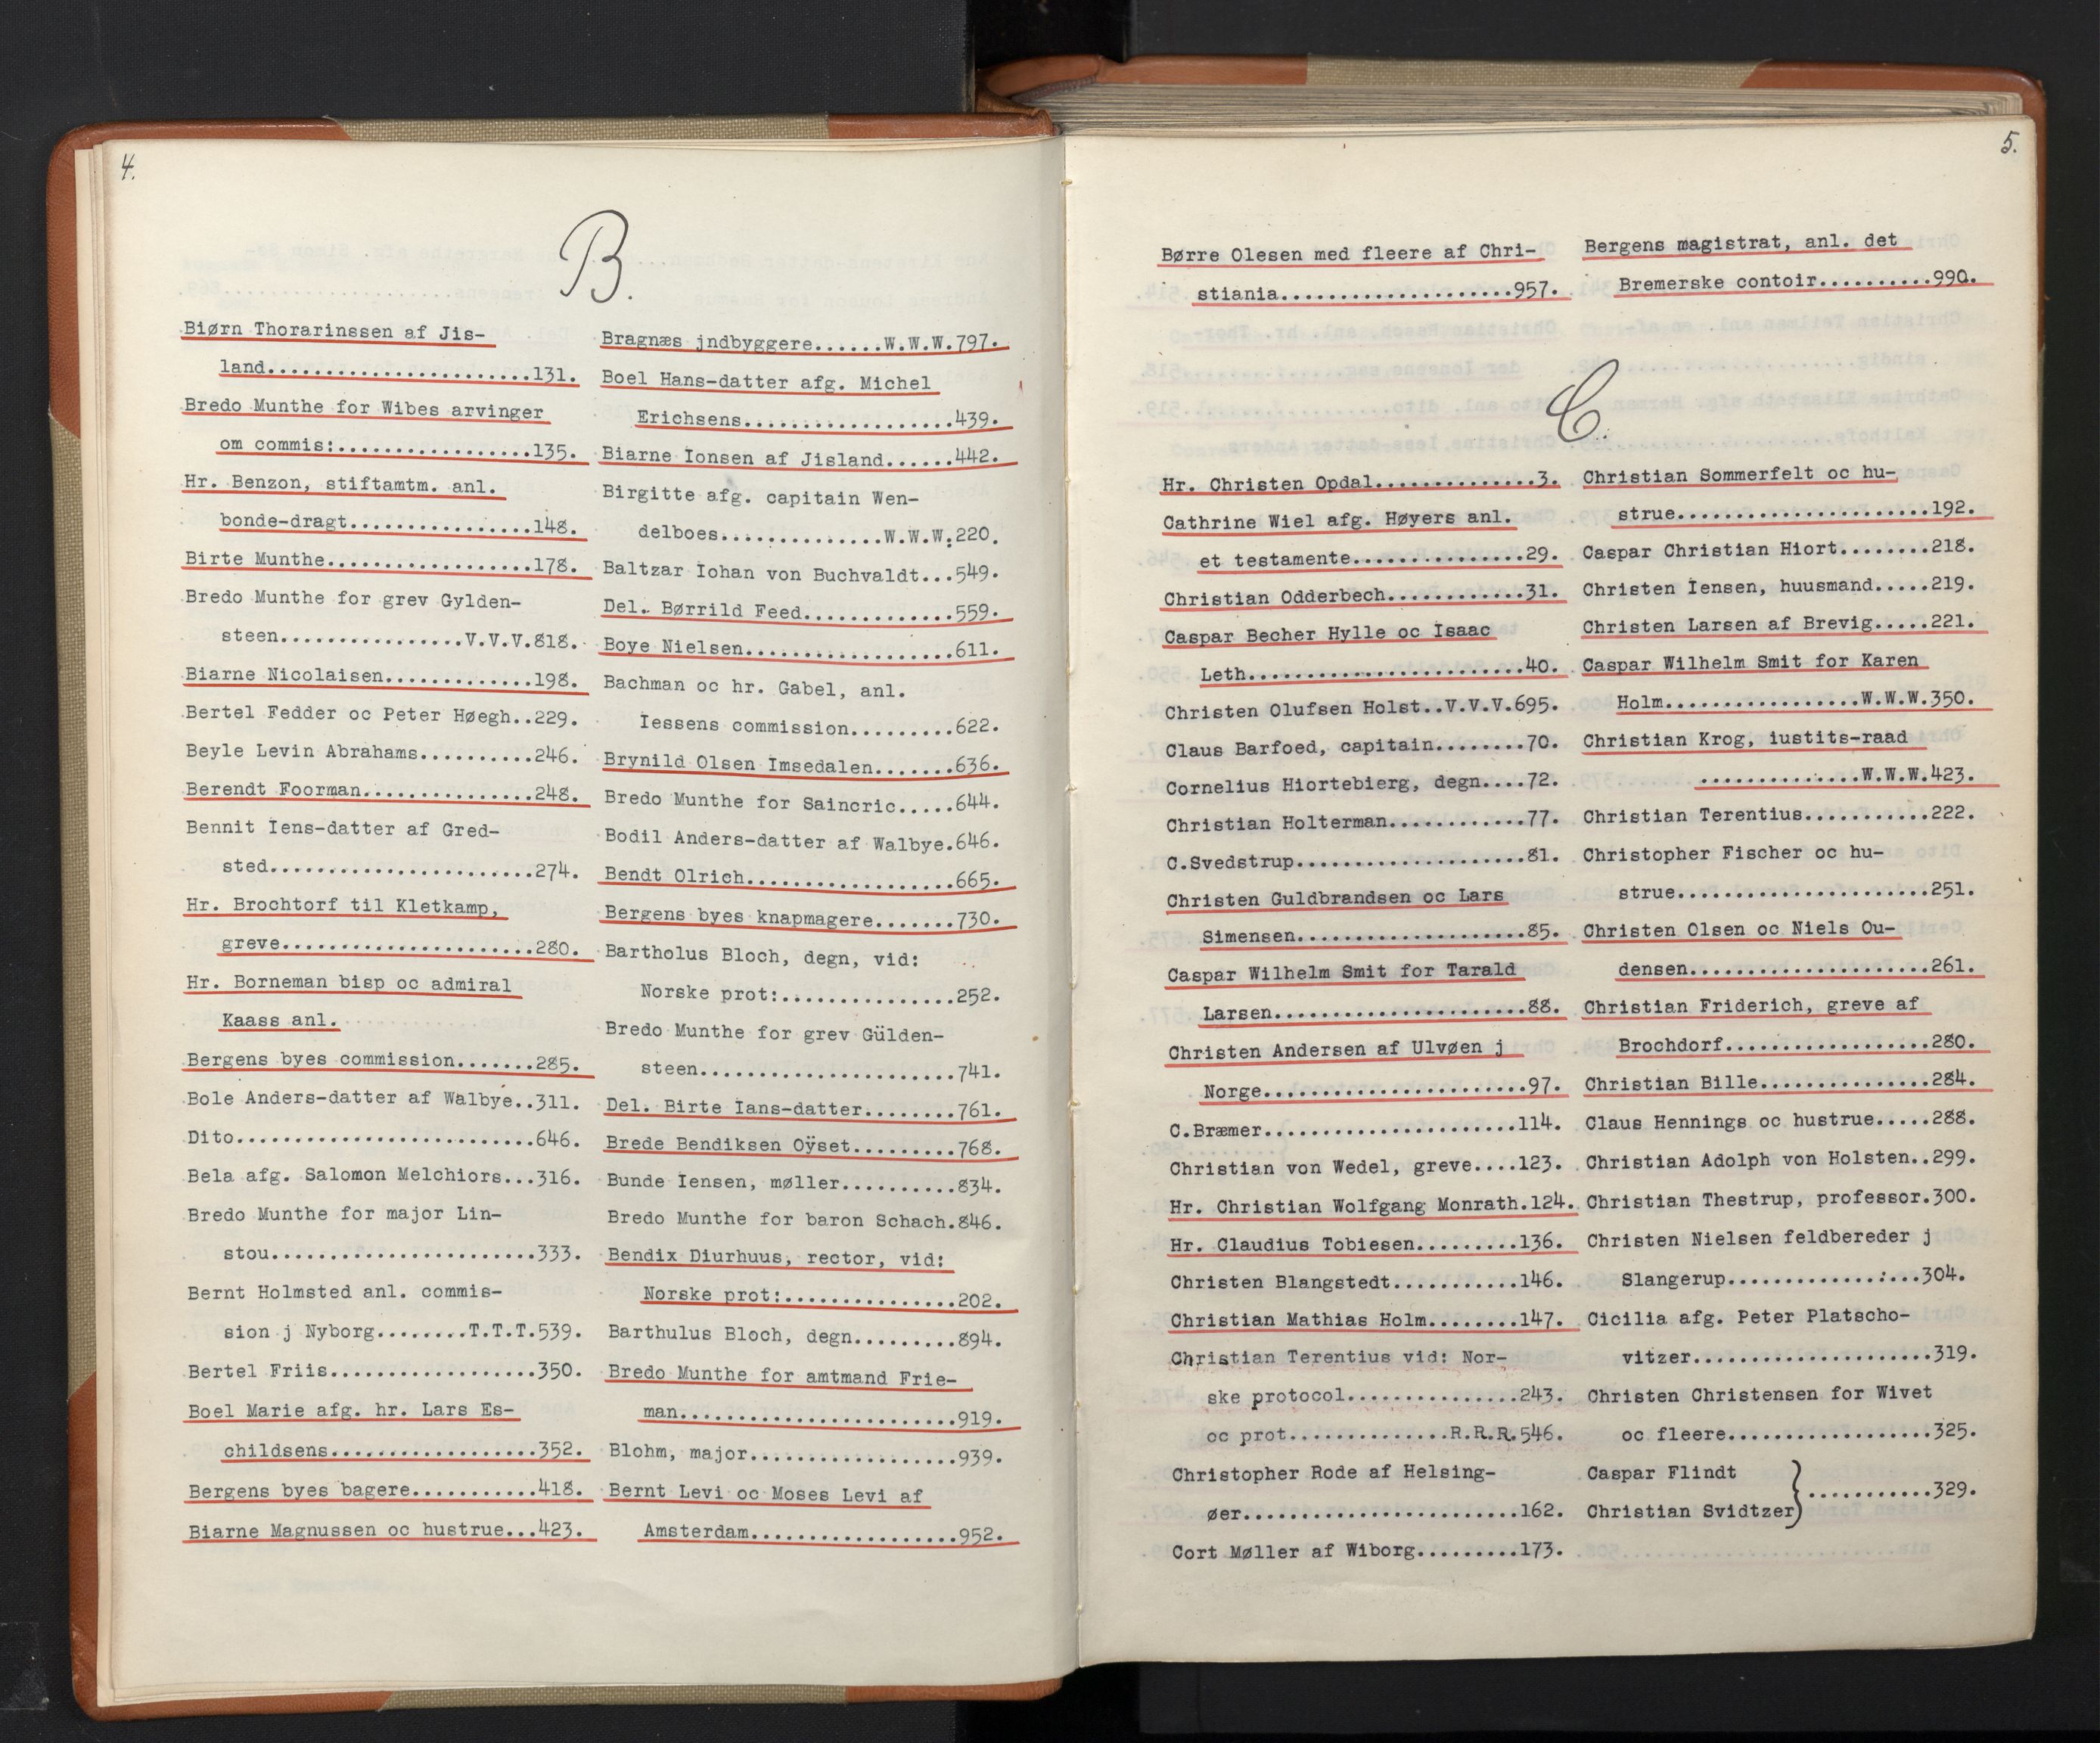 4.
B.
Biørn Thorarinssen af Jis-
land.......................131.
Bredo Munthe for Wibes arvinger
om commis:.................135.
Hr. Benzon, stiftamtm. anl.
bonde-dragt................148.
Birte Munthe..................178.
Bredo Munthe for grev Gylden-
steen................V.V.V.818.
Biarne Nicolaisen.............198.
Bertel Fedder oc Peter Høegh..229.
Beyle Levin Abrahams..........246.
Berendt Foorman...............248.
Bennit Iens-datter af Gred-
sted.......................274.
Hr. Brochtorf til Kletkamp,
greve......................280.
Hr. Borneman bisp oc admiral
Kaass anl.
Bergens byes commission.......285.
Bole Anders-datter af Walbye..311.
Dito..........................646.
Bela afg. Salomon Melchiors...316.
Bredo Munthe for major Lin-
stou.......................333.
Bernt Holmsted anl. commis-
sion j Nyborg........T.T.T.539.
Bertel Friis..................350.
Boel Marie afg. hr. Lars Es-
childsens..................352.
Bergens byes bagere...........418.
Biarne Magnussen oc hustrue...423.
Bragnæs jndbyggere......W.W.W.797.
Boel Hans-datter afg. Michel
Erichsens..................439.
Biarne Ionsen af Jisland......442.
Birgitte afg. capitain Wen-
delboes..............W.W.W.220.
Baltzar Iohan von Buchvaldt...549.
Del. Børrild Feed.............559.
Boye Nielsen..................611.
Bachman oc hr. Gabel, anl.
Iessens commission.........622.
Brynild Olsen Imsedalen.......636.
Bredo Munthe for Saincric.....644.
Bodil Anders-datter af Walbye.646.
Bendt Olrich..................665.
Bergens byes knapmagere.......730.
Bartholus Bloch, degn, vid:
Norske prot:...............252.
Bredo Munthe for grev Gülden-
steen......................741.
Del. Birte Ians-datter........761.
Brede Bendiksen Oÿset.........768.
Bunde Iensen, møller..........834.
Bredo Munthe for baron Schach.846.
Bendix Diurhuus, rector, vid:
Norske prot:...............202.
Barthulus Bloch, degn.........894.
Bredo Munthe for amtmand Frie-
man........................919.
Blohm, major..................939.
Bernt Levi oc Moses Levi af
Amsterdam..................952.
5.
Børre Olesen med fleere af Chri-
stiania....................957.
Bergens magistrat, anl. det
Bremerske contoir..........990.
C.
Hr. Christen Opdal..............3.
Cathrine Wiel afg. Høyers anl.
et testamente...............29.
Christian Odderbech............31.
Caspar Becher Hylle oc Isaac
Leth........................40.
Christen Olufsen Holst..V.V.V.695.
Claus Barfoed, capitain........70.
Cornelius Hiortebierg, degn....72.
Christian Holterman............77.
C.Svedstrup....................81.
Christen Guldbrandsen oc Lars
Simensen....................85.
Caspar Wilhelm Smit for Tarald
Larsen......................88.
Christen Andersen af Ulvøen j
Norge.......................97.
C.Bræmer......................114.
Christian von Wedel, greve....123.
Hr. Christian Wolfgang Monrath.124.
Hr. Claudius Tobiesen.........136.
Christen Blangstedt...........146.
Christian Mathias Holm........147.
Christian Terentius vid: Nor-
ske protocol...............243.
oc prot..............R.R.R.546.
Christopher Rode af Helsing-
øer........................162.
Cort Møller af Wiborg.........173.
Christian Sommerfelt oc hu-
strue......................192.
Caspar Christian Hiort........218.
Christen Iensen, huusmand.....219.
Christen Larsen af Brevig.....221.
Caspar Wilhelm Smit for Karen
Holm.................W.W.W.350.
Christian Krog, iustits-raad
..............W.W.W.423.
Christian Terentius...........222.
Christopher Fischer oc hu-
strue......................251.
Christen Olsen oc Niels Ou-
densen.....................261.
Christian Friderich, greve af
Brochdorf..................280.
Christian Bille...............284.
Claus Hennings oc hustrue.....288.
Christian Adolph von Holsten..299.
Christian Thestrup, professor.300.
Christen Nielsen feldbereder j
Slangerup..................304.
Cicilia afg. Peter Platscho-
vitzer.....................319.
Christen Christensen for Wivet
oc fleere..................325.
Caspar Flindt
}...........329.
Christian Svidtzer